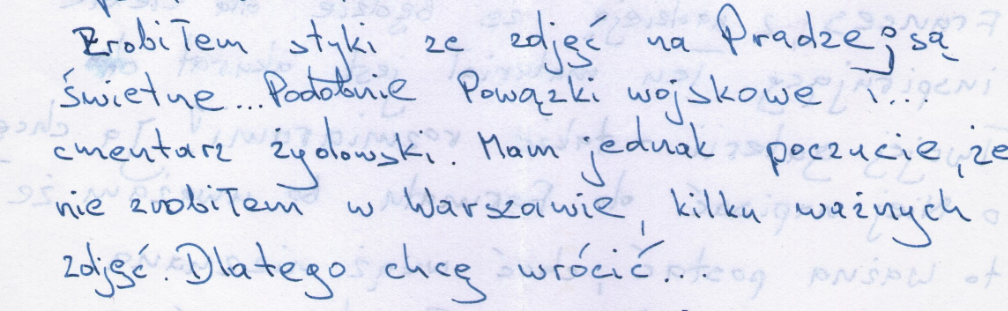 Zrobiłem styki ze zdjęć na Pradze, są
świetne... Podobnie Powązki wojskowe i...
cmentarz żydowski. Mam jednak poczucie, że
nie zrobiłem w Warszawie, kilku ważnych
zdjęć. Dlatego chcę wrócić...